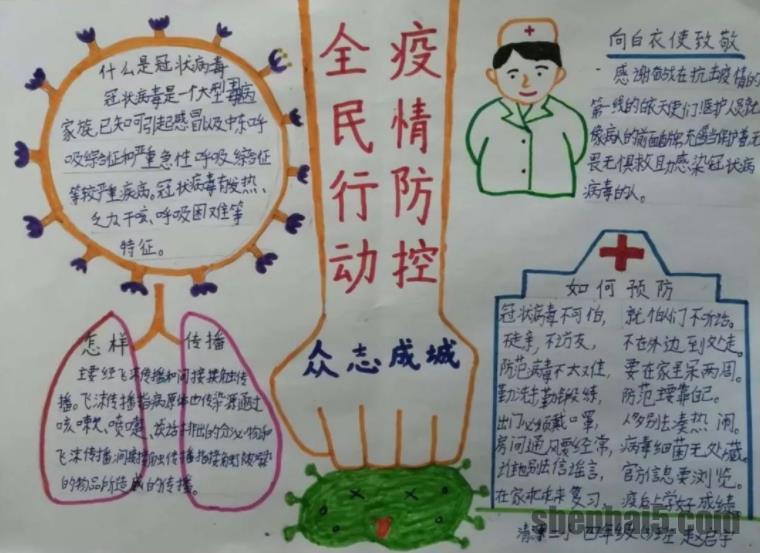 什么是冠状病毒
冠状病毒是一个大型病毒
家族,已知可引起感冒以及中东呼
吸综合征和严重急性呼吸综合征
等较严重疾病。冠状病毒有发热、
乏力干咳、呼吸困难等
特征。
全民行动
疫情防控
众志成城
向白衣使致敬
感谢奋战在抗击疫情的
第一线的白衣天使们医护人员就
畏无惧救助感染冠状病
病毒的人。
怎样 传播
主要经飞沫传播和间接接触传
播。飞沫传播指病原体由传染源通过
咳嗽、喷嚏、谈话排出的分泌物和
的物品所造成的传播。
如何预防
冠状病毒不可怕,
走亲,不访友,
防范病毒不太难,
勤洗手勤锻练,
出门必须戴口罩,
房间通风要经常,
别信谣言,
在家
复习
就怕你们不听话。
不在外边到处走。
要在家里呆两周。
防范主要靠自己。
人多别去凑热闹。
病毒细菌无处藏。
官方信息要浏览。
上学好成绩
小四年级
班 赵
宇
shenhai5.com